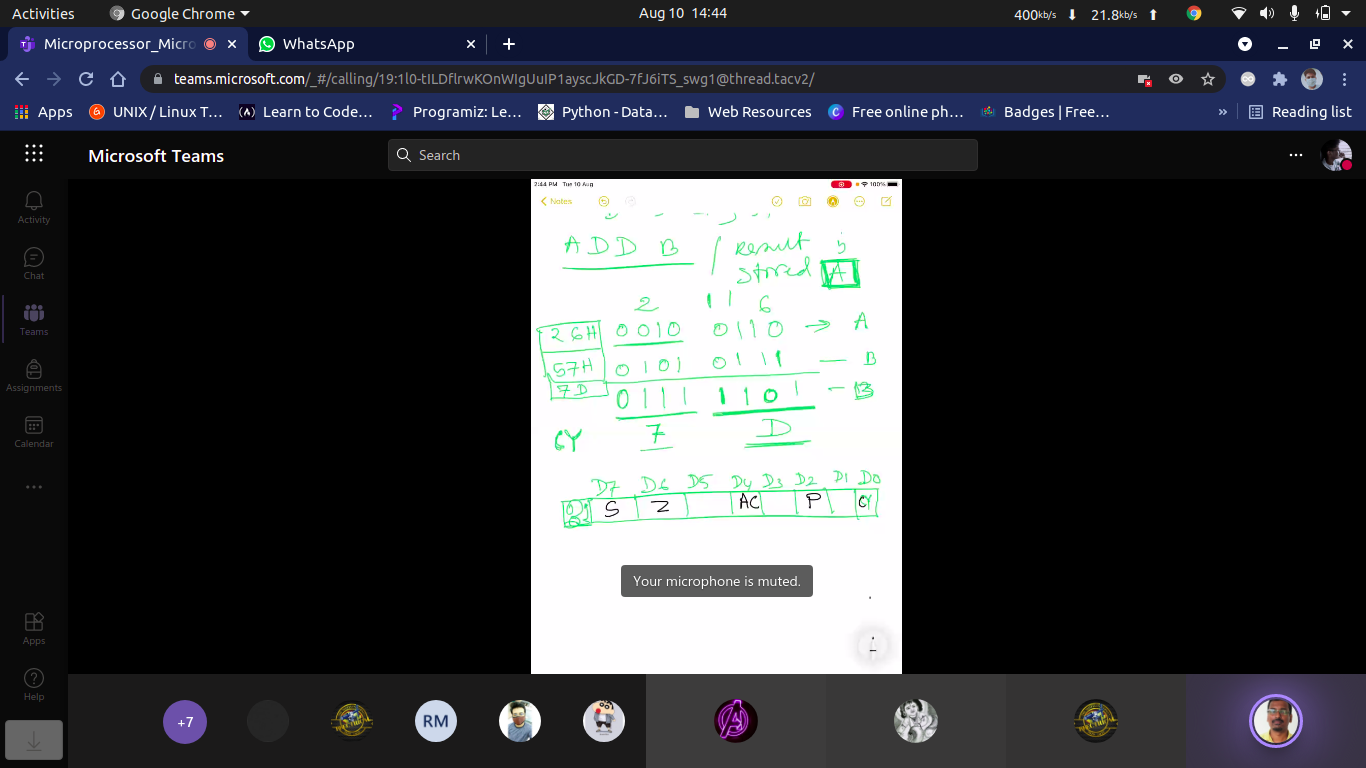 Activities Google Chrome Aug 10 14:44 400kb/s 21.8kb/s
Microprocessor_Micro WhatsApp
teams.microsoft.com/_#/calling/19:1l0-tILDflrwKOnWIgUuIP1ayscJkGD-7fJ6iTS_swg1@thread.tacv2/
Apps UNIX / Linux T... Learn to Code... Programiz: Le... Python - Data... Web Resources Free online ph... Badges | Free... » Reading list
Microsoft Teams Search
Activity
Chat
Teams
Assignments
Calendar
Apps
Help
2:44 PM Tue 10 Aug 100%
Notes
ADD B / Result is
stored A
2 11 6
26H 0010 0110 → A
57H 0101 0111 — B
7D 0111 1101 –
CY 7 D
D7 D6 D5 D4 D3 D2 D1 D0
S Z AC P CY
Your microphone is muted.
+7 RM